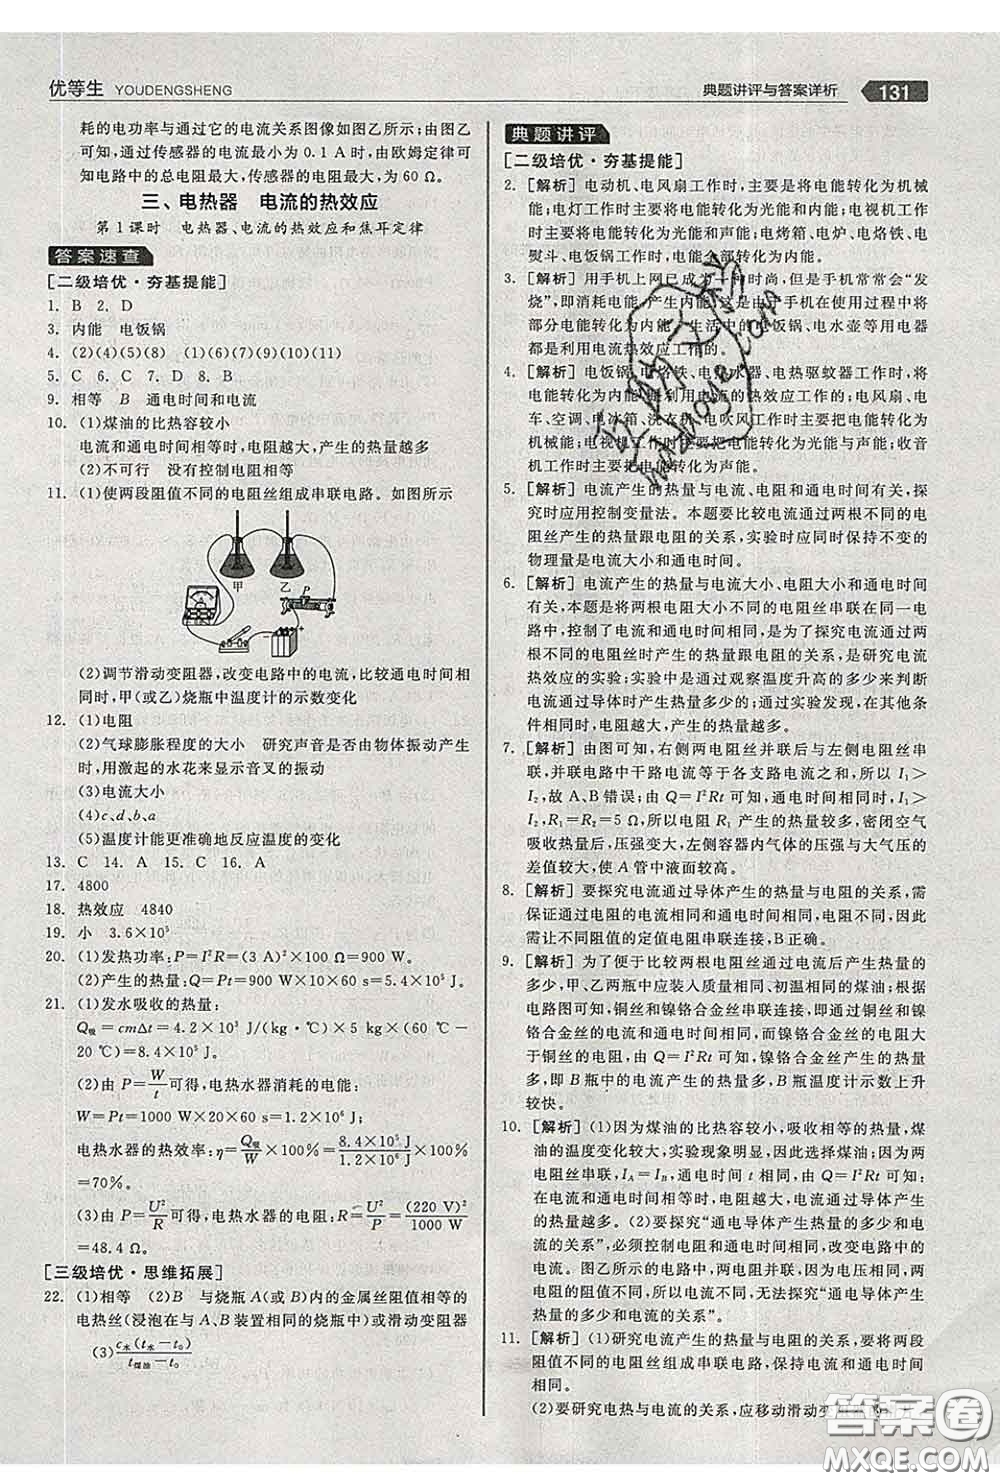 优等生 YOUDENGSHENG
典题讲评与答案详析 131
耗的电功率与通过它的电流关系图像如图乙所示；由图乙
可知，通过传感器的电流最小为 0.1 A 时，由欧姆定律可
知电路中的总电阻最大，传感器的电阻最大，为 60 Ω。
三、电热器 电流的热效应
第 1 课时 电热器、电流的热效应和焦耳定律
答案速查
[二级培优·夯基提能]
1. B 2. D
3. 内能 电饭锅
4. (2)(4)(5)(8) (1)(6)(7)(9)(10)(11)
5. C 6. C 7. D 8. B
9. 相等 B 通电时间和电流
10. (1)煤油的比热容较小
电流和通电时间相等时，电阻越大，产生的热量越多
(2)不可行 没有控制电阻相等
11. (1)使两段阻值不同的电阻丝组成串联电路。如图所示
甲 乙
P
(2)调节滑动变阻器，改变电路中的电流，比较通电时间相
同时，甲(或乙)烧瓶中温度计的示数变化
12. (1)电阻
(2)气球膨胀程度的大小 研究声音是否由物体振动产生
时，用激起的水花来显示音叉的振动
(3)电流大小
(4)c、d、b、a
(5)温度计能更准确地反应温度的变化
13. C 14. A 15. C 16. A
17. 4800
18. 热效应 4840
19. 小 3.6×10⁵
20. (1)发热功率：P=I²R=(3 A)²×100 Ω=900 W.
(2)产生的热量：Q=900 W×10×60 s=5.4×10⁵ J.
21. (1)发水吸收的热量：
Q吸=cmΔt=4.2×10³ J/(kg·℃)×5 kg×(60 ℃-
20 ℃)=8.4×10⁵ J.
(2)由 P=W/t可得，电热水器消耗的电能：
W=Pt=1000 W×20×60 s=1.2×10⁶ J；
电热水器的热效率：η=Q吸/W×100%=8.4×10⁵ J/1.2×10⁶ J×100%
=70%。
(3)由 P=U²/R可得，电热水器的电阻：R=U²/P=(220 V)²/1000 W
=48.4 Ω。
[三级培优·思维拓展]
22. (1)相等 (2)B 与烧瓶 A(或 B)内的金属丝阻值相等的
电热丝(浸泡在与 A、B 装置相同的烧瓶中)或滑动变阻器
(3)c水(t水-t₀)/t煤油-t₀
典题讲评
[二级培优·夯基提能]
2. [解析] 电动机、电风扇工作时，主要是将电能转化为机械
能；电灯工作时，主要将电能转化为光能和内能；电视机工
作时，主要将电能转化为光能和声能；电烤箱、电炉、电烙铁、电
熨斗、电暖气工作时，电能全部转化为内能。
3. [解析] 用手机上网已成为一种时尚，但是手机常常会“发
烧”，即消耗电能，产生内能，这是由于手机在使用时，将
部分电能转化为内能。生活中的电饭锅、电水壶等用电器
都是利用电流热效应工作的。
4. [解析] 电饭锅、电烙铁、电热水器、电热驱蚊器工作时，将
电能转化为内能，利用电流的热效应工作的；电风扇、电
车、空调、电冰箱、洗衣机、电吹风工作时，主要把电能转化为机械
能；电视机工作时主要把电能转化为光能与声能；收音
机工作时主要把电能转化为声能。
5. [解析] 电流产生的热量与电流、电阻和通电时间有关，在探
究时应用控制变量法。本题要比较电流通过不同的电
阻丝产生的热量跟电阻的关系，实验时应同时保持不变的
物理量是电流大小和通电时间。
6. [解析] 电流产生的热量与电流大小、电阻大小和通电时间
有关，本题是将两根电阻大小不同的电阻丝串联在同一电
路中，控制了电流和通电时间相同，是为了探究电流通过
电阻丝时产生的热量跟电阻的关系；是研究电流
热效应的实验；实验中是通过观察温度升高的多少来判断
电流通过导体时产生热量多少的；通过实验发现，在其他
条件相同时，电阻越大，产生的热量越多。
7. [解析] 由图可知，右侧两电阻丝并联后与左侧电阻丝串
联，并联电路中干路电流等于各支路电流之和，所以 I₁>
I₂，故 A、B 错误；由 Q=I²Rt 可知，通电时间相同时，I₁>
I₂，R₁=R₂=5 Ω，所以电阻 R₁ 产生的热量多，密闭空气
吸收热量后，压强变大，左侧容器内气体的压强与大气压的
差值较大，使 A 管中液面较高。
8. [解析] 要探究电流通过导体产生的热量与电阻的关系，需
保证通过电阻的电流相同和通电时间相同，电阻不同，因此
需让不同阻值的定值电阻串联连接，B 正确。
9. [解析] 为了便于比较两根电阻丝通过电流后产生热量的
多少，甲、乙两瓶中应装入质量相同、初温相同的煤油；根据
电路图可知，铜丝和镍铬合金丝串联连接，即通过铜丝与镍
铬合金丝的电流和通电时间相同，而镍铬合金丝的电阻大
于铜丝的电阻，由 Q=I²Rt 可知，镍铬合金丝产生的热量
多，即 B 瓶中的电流产生的热量多，B 瓶温度计示数上升
较快。
10. [解析] (1)因为煤油的比热容较小，吸收相等的热量，煤
油的温度变化较大，实验现象明显，因此选择煤油；因为两
电阻丝串联，I_A=I_B，通电时间 t 相同，根据 Q=I²Rt 可知，
在电流和通电时间相等时，电阻越大，电流通过导体产生
的热量越多。(2)要探究“通电导体产生热量的多少和电流
的关系”，必须控制电阻和通电时间相同，改变电路中的电
流。图乙所示的电路中，两电阻丝中的电流不同，通电时间
相同，但电阻也不相同，因此不可行，无法探究“通电导体产生
热量的多少和电流的关系”。
11. [解析] (1)研究电流产生的热量与电阻的关系，要将两段
阻值不同的电阻丝组成串联电路，保持电流和通电时间相
同。
(2)要研究电热与电流的关系，应移动滑动变
答案圈
MXQE.COM